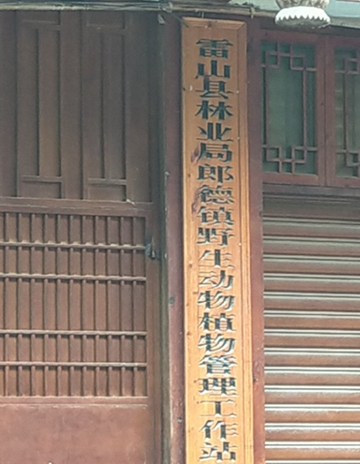 雷山县林业局郎德镇野生动物植物管理工作站